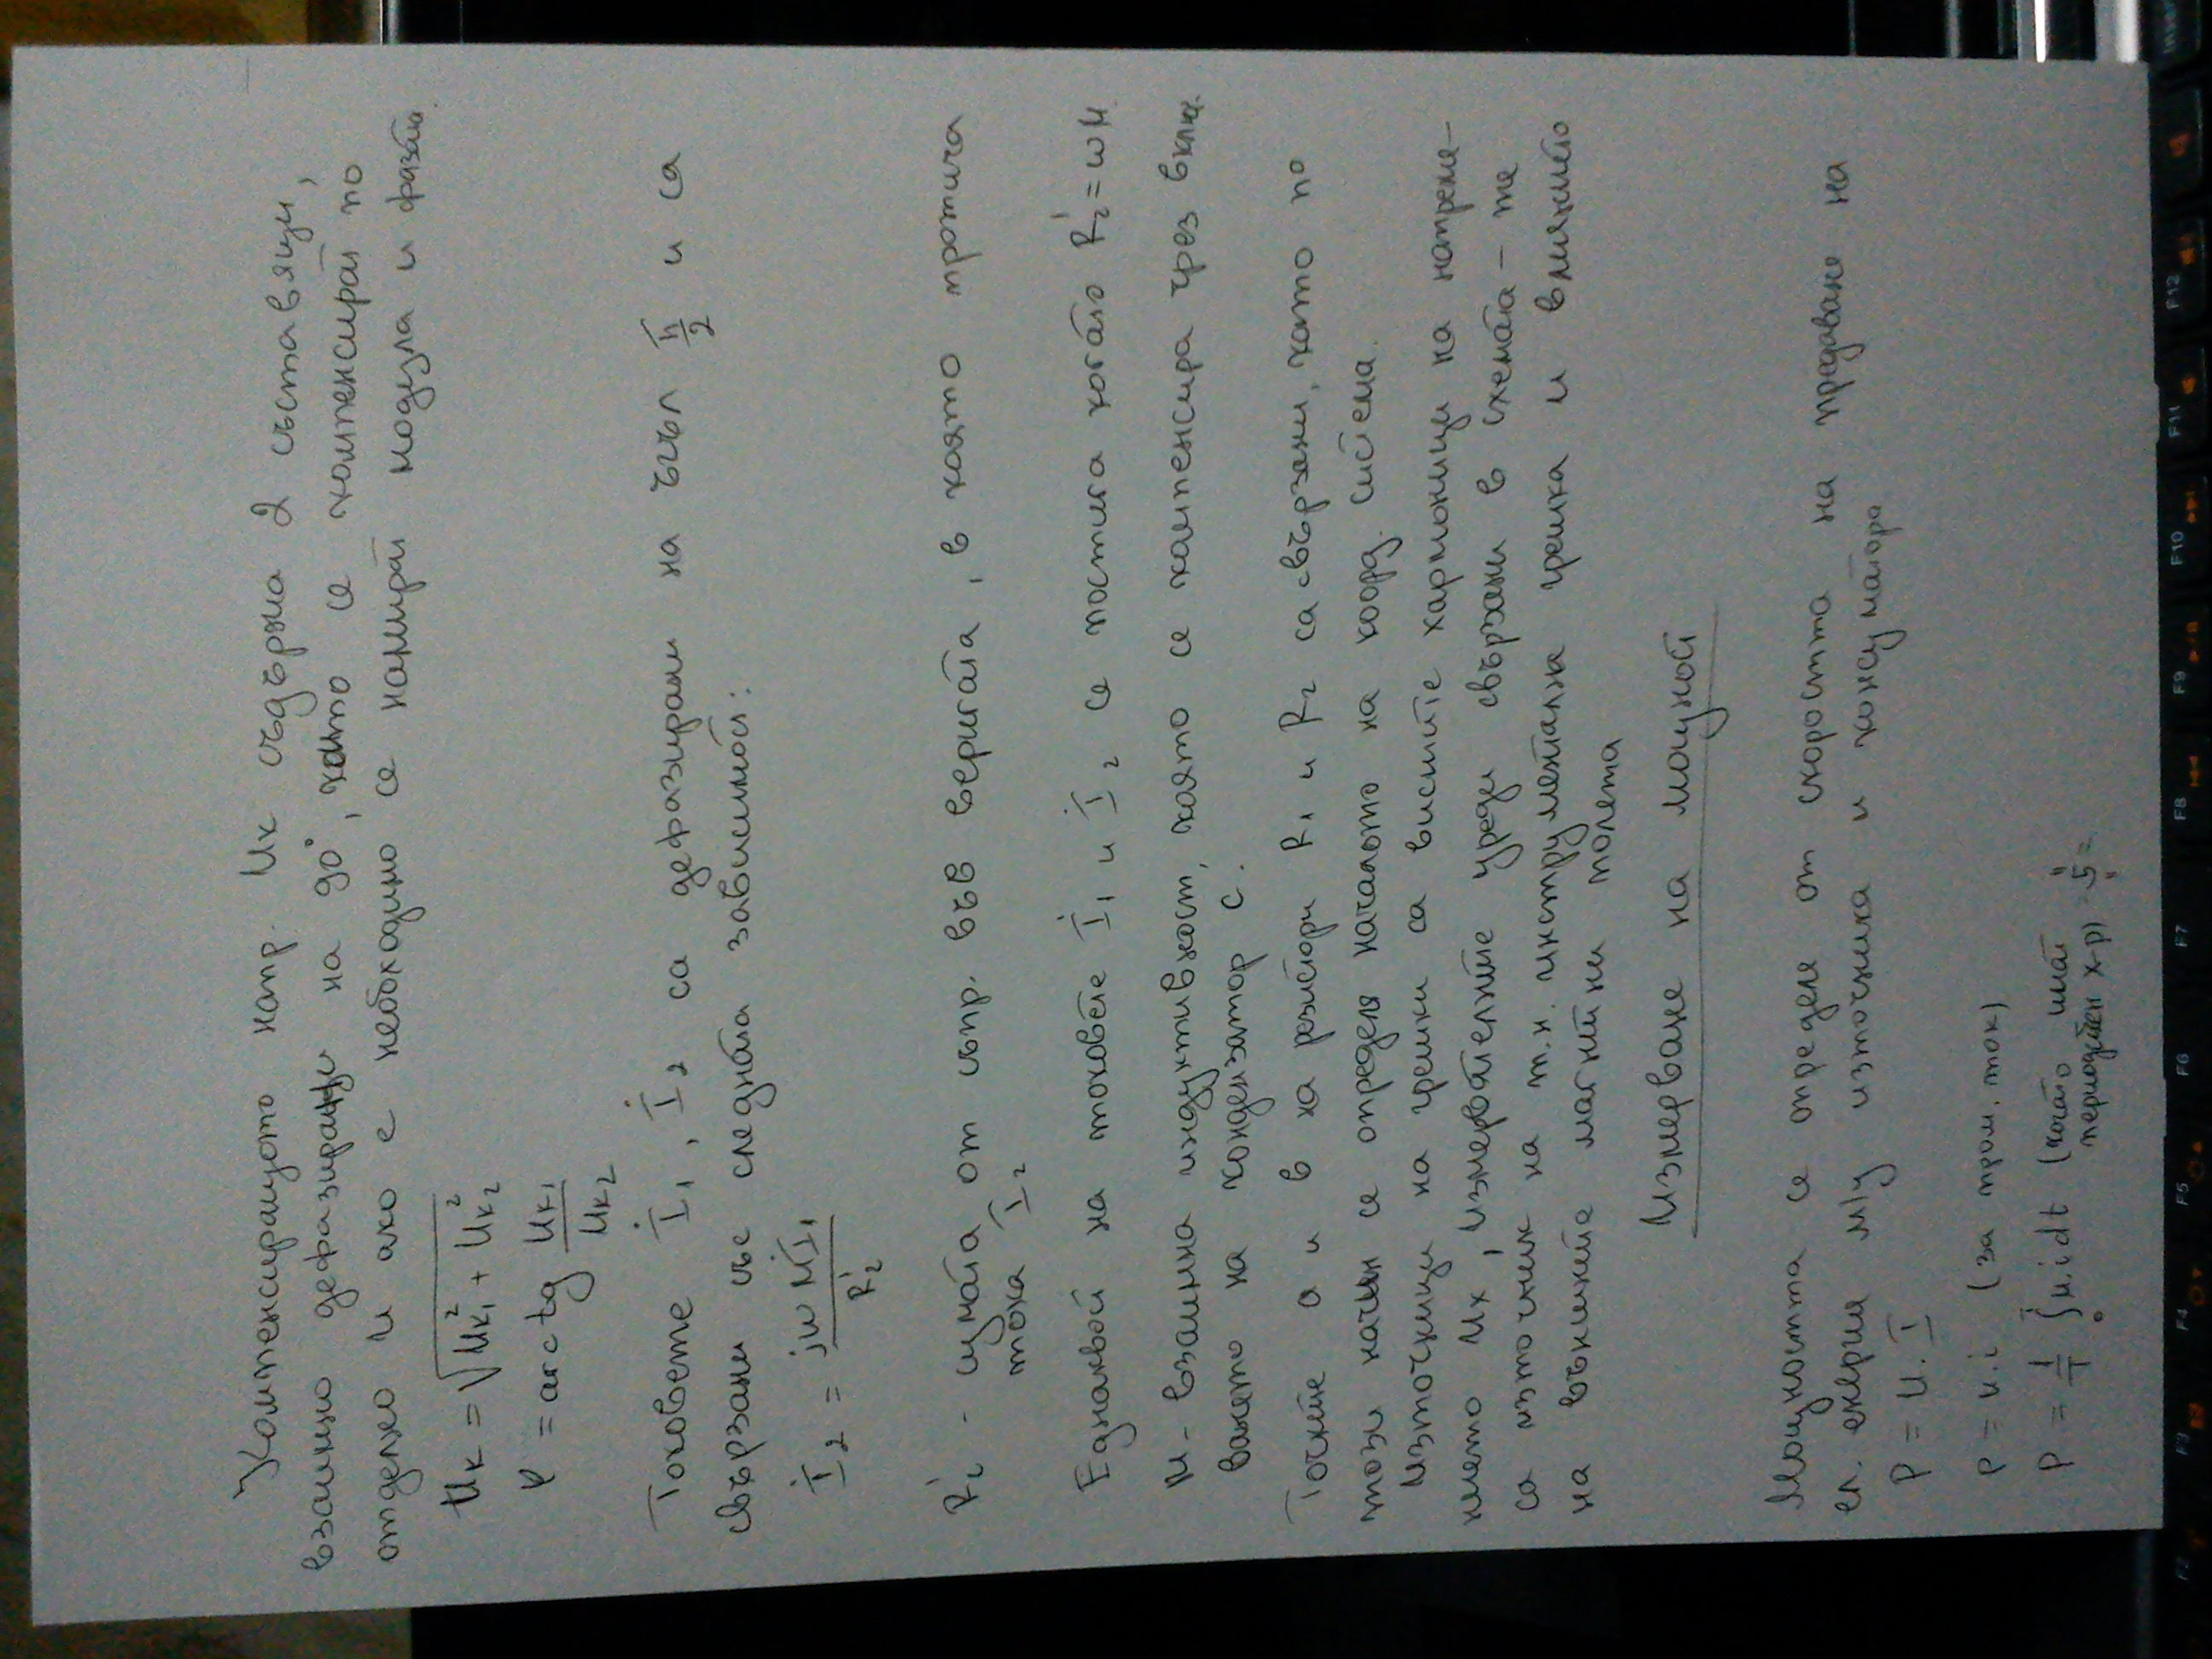 Компенсиращото напр. Uк съдържа 2 съставящи,
взаимно дефазиращи на 90°, които се компенсират по
отделно и ако е необходимо се намират модула и фазата.
Uк = √(Uк₁² + Uк₂²)
φ = arctg Uк₁/Uк₂
Токовете İ₁, İ₂ са дефазирани на ъгъл π/2 и са
свързани със следната зависимост:
İ₂ = jωMİ₁/R₂'
R₂' - сумата от съпр. във веригата, в която протича
тока İ₂
Еднаквост на токовете İ₁ и İ₂ се постига когато R₂' = ωM
M - взаимна индуктивност, която се компенсира чрез включ.
ването на кондензатор C.
Точките a и b на резистори R₁ и R₂ са свързани, като по
този начин се определя началото на коорд. система.
Източници на грешки са висшите хармоници на напреже-
нието Ux, измервателните уреди свързани в схемата - те
са източник на т.н. инструментална грешка и влиянието
на външните магнитни полета
Измерване на мощност
Мощността се определя от скоростта на предаване на
ел. енергия м/у източника и консуматора
P = U.I
p = u.i (за пром. ток)
P = 1/T ∫₀ᵀ u.i dt (които имат
периодичен х-р)